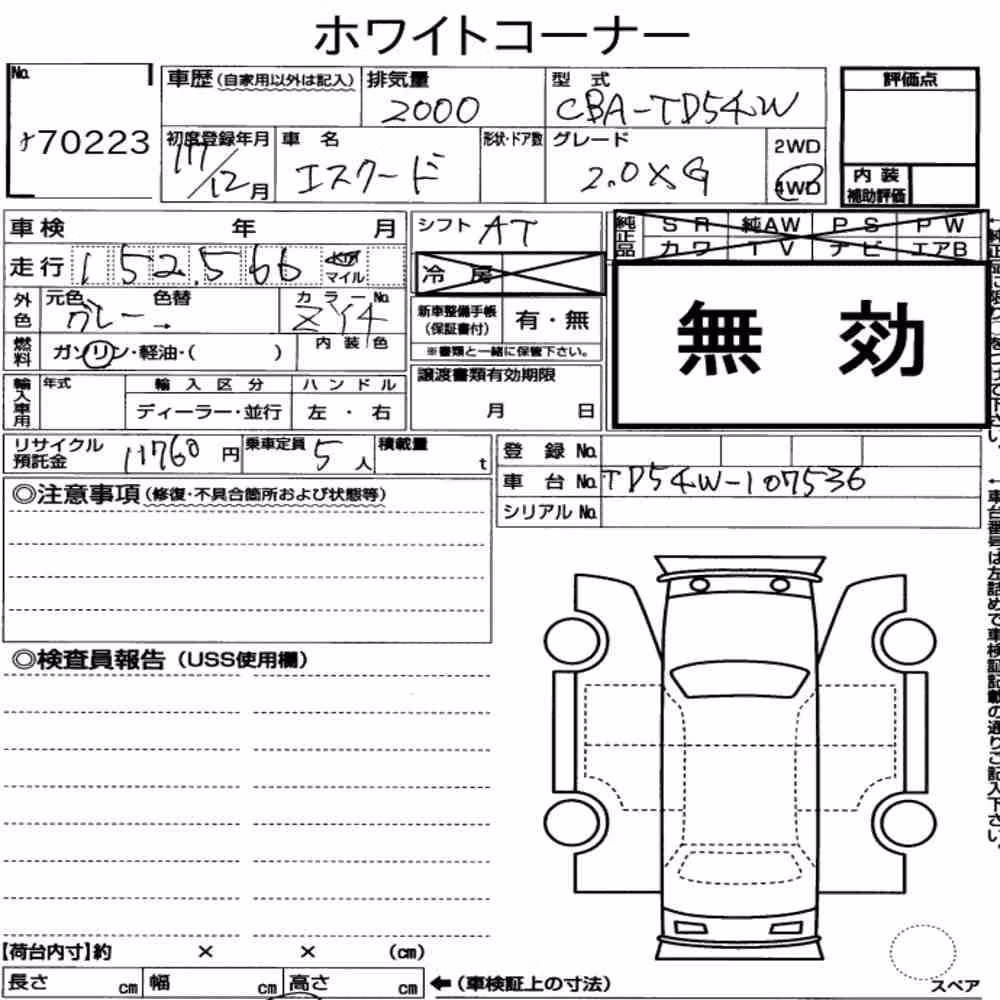 ホワイトコーナー
No.
オ70223
車歴(自家用以外は記入)
排気量
2000
型 式
CBA-TD54W
評価点
初度登録年月
17/12月
車 名
エスクード
形状・ドア数
グレード
2.0XG
2WD
4WD
内 装
補助評価
車検 年 月
シフト AT
純正品
SR 純AW PS PW
カワ TV ナビ エアB
走行 152,566 マイル
冷 房
無 効
外色
元色
グレー
色替
→
カラーNo.
ZY4
新車整備手帳
(保証書付)
有・無
※書類と一緒に保管下さい。
燃料
ガソリン・軽油・( )
内 装 色
譲渡書類有効期限
月 日
輸入車用
年式
輸 入 区 分
ハ ン ド ル
ディーラー・並行
左 ・ 右
リサイクル
預託金
11760 円
乗車定員
5 人
積載量
t
登 録 No.
車 台 No. TD54W-107536
シリアル No.
◎注意事項(修復・不具合箇所および状態等)
◎検査員報告(USS使用欄)
←車台番号は左詰めで車検証記載の通りご記入下さい。
【荷台内寸】約 × × (cm)
長さ cm 幅 cm 高さ cm
←(車検証上の寸法)
スペア